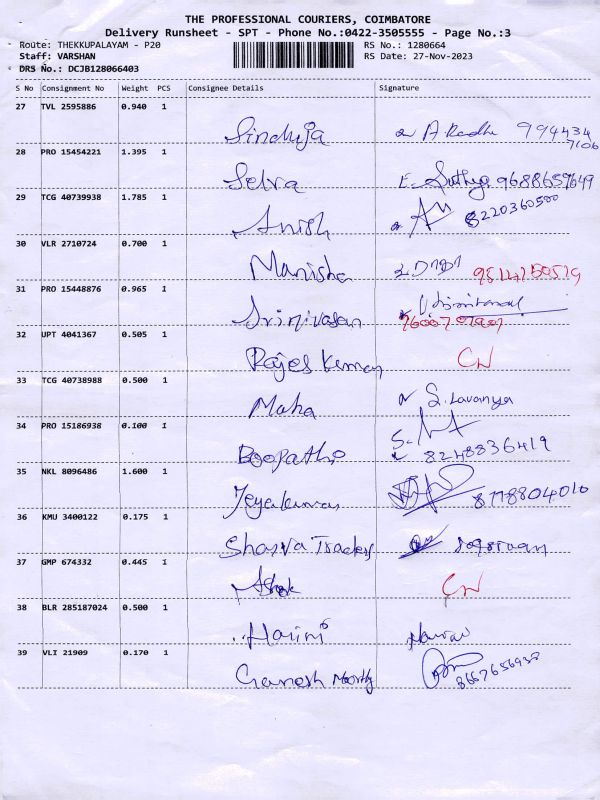 THE PROFESSIONAL COURIERS, COIMBATORE
Delivery Runsheet - SPT - Phone No.:0422-3505555 - Page No.:3
Route: THEKKUPALAYAM - P20 RS No.: 1280664
Staff: VARSHAN RS Date: 27-Nov-2023
DRS No.: DCJB128066403
S No Consignment No Weight PCS Consignee Details Signature
27 TVL 2595886 0.940 1
Sinduja A. Radha 994434
7106
28 PRO 15454221 1.395 1
Selva 9688659649
29 TCG 40739938 1.785 1
Anish 8220360500
30 VLR 2710724 0.700 1
Manisha
31 PRO 15448876 0.965 1
Srinivasan
32 UPT 4041367 0.505 1
Rajes Kumar CN
33 TCG 40738988 0.500 1
Maha S. Lavanya
34 PRO 15186938 0.100 1
Boopathi 8248836419
35 NKL 8096486 1.600 1
Jeyakumar 8778804010
36 KMU 3400122 0.175 1
Sharva Traders
37 GMP 674332 0.445 1
Ashok CN
38 BLR 285187024 0.500 1
Harini
39 VLI 21909 0.170 1
Ganesh Moorthy 8667656938